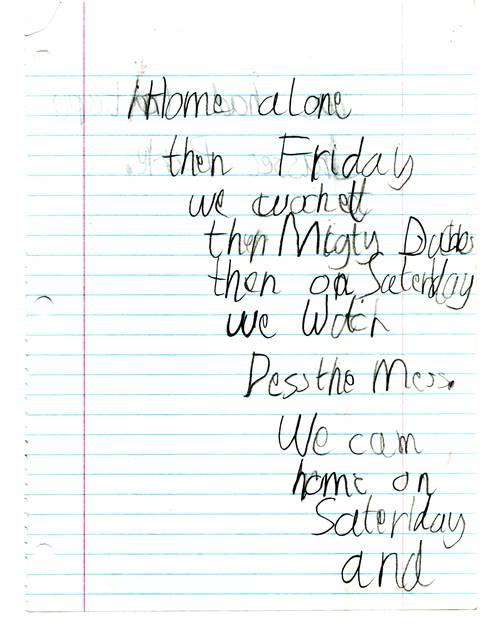 Home alone
then Friday
we wachett
then Migty Ducks
then on Saterday
we Watch
Dess the Mess.
We cam
home on
Saterday
and